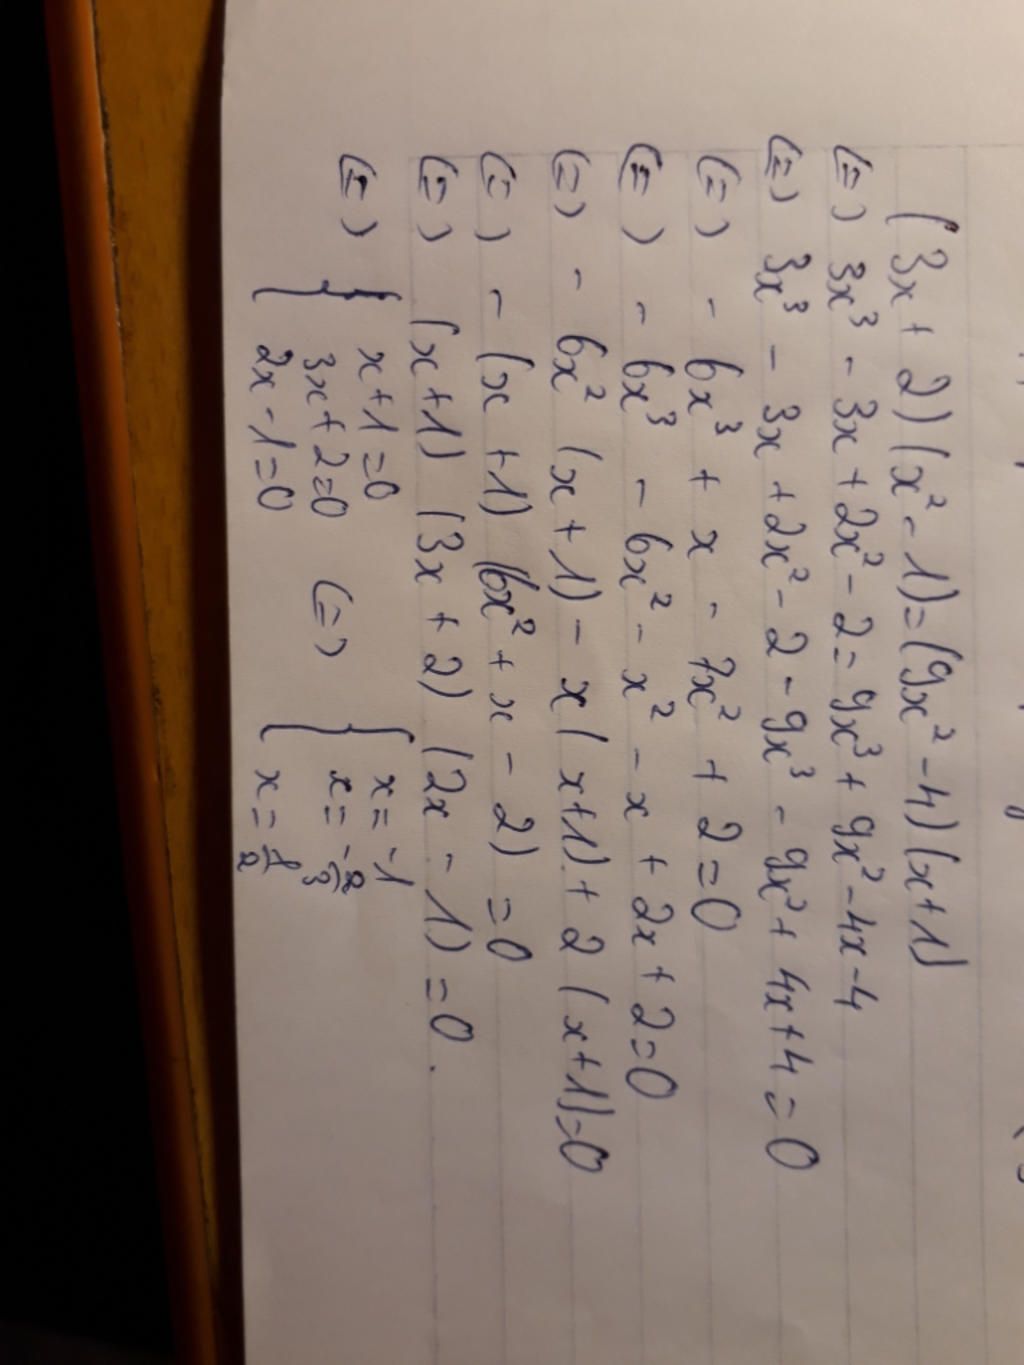 (3x + 2)(x² - 1) = (9x² - 4)(x + 1)
(=) 3x³ - 3x + 2x² - 2 = 9x³ + 9x² - 4x - 4
(=) 3x³ - 3x + 2x² - 2 - 9x³ - 9x² + 4x + 4 = 0
(=) - 6x³ + x - 7x² + 2 = 0
(=) - 6x³ - 6x² - x² - x + 2x + 2 = 0
(=) - 6x² (x + 1) - x (x + 1) + 2 (x + 1) = 0
(=) - (x + 1) (6x² + x - 2) = 0
(=) (x + 1) (3x + 2) (2x - 1) = 0.
(=) { x + 1 = 0 (=) { x = -1
3x + 2 = 0 x = -2/3
2x - 1 = 0 x = 1/2